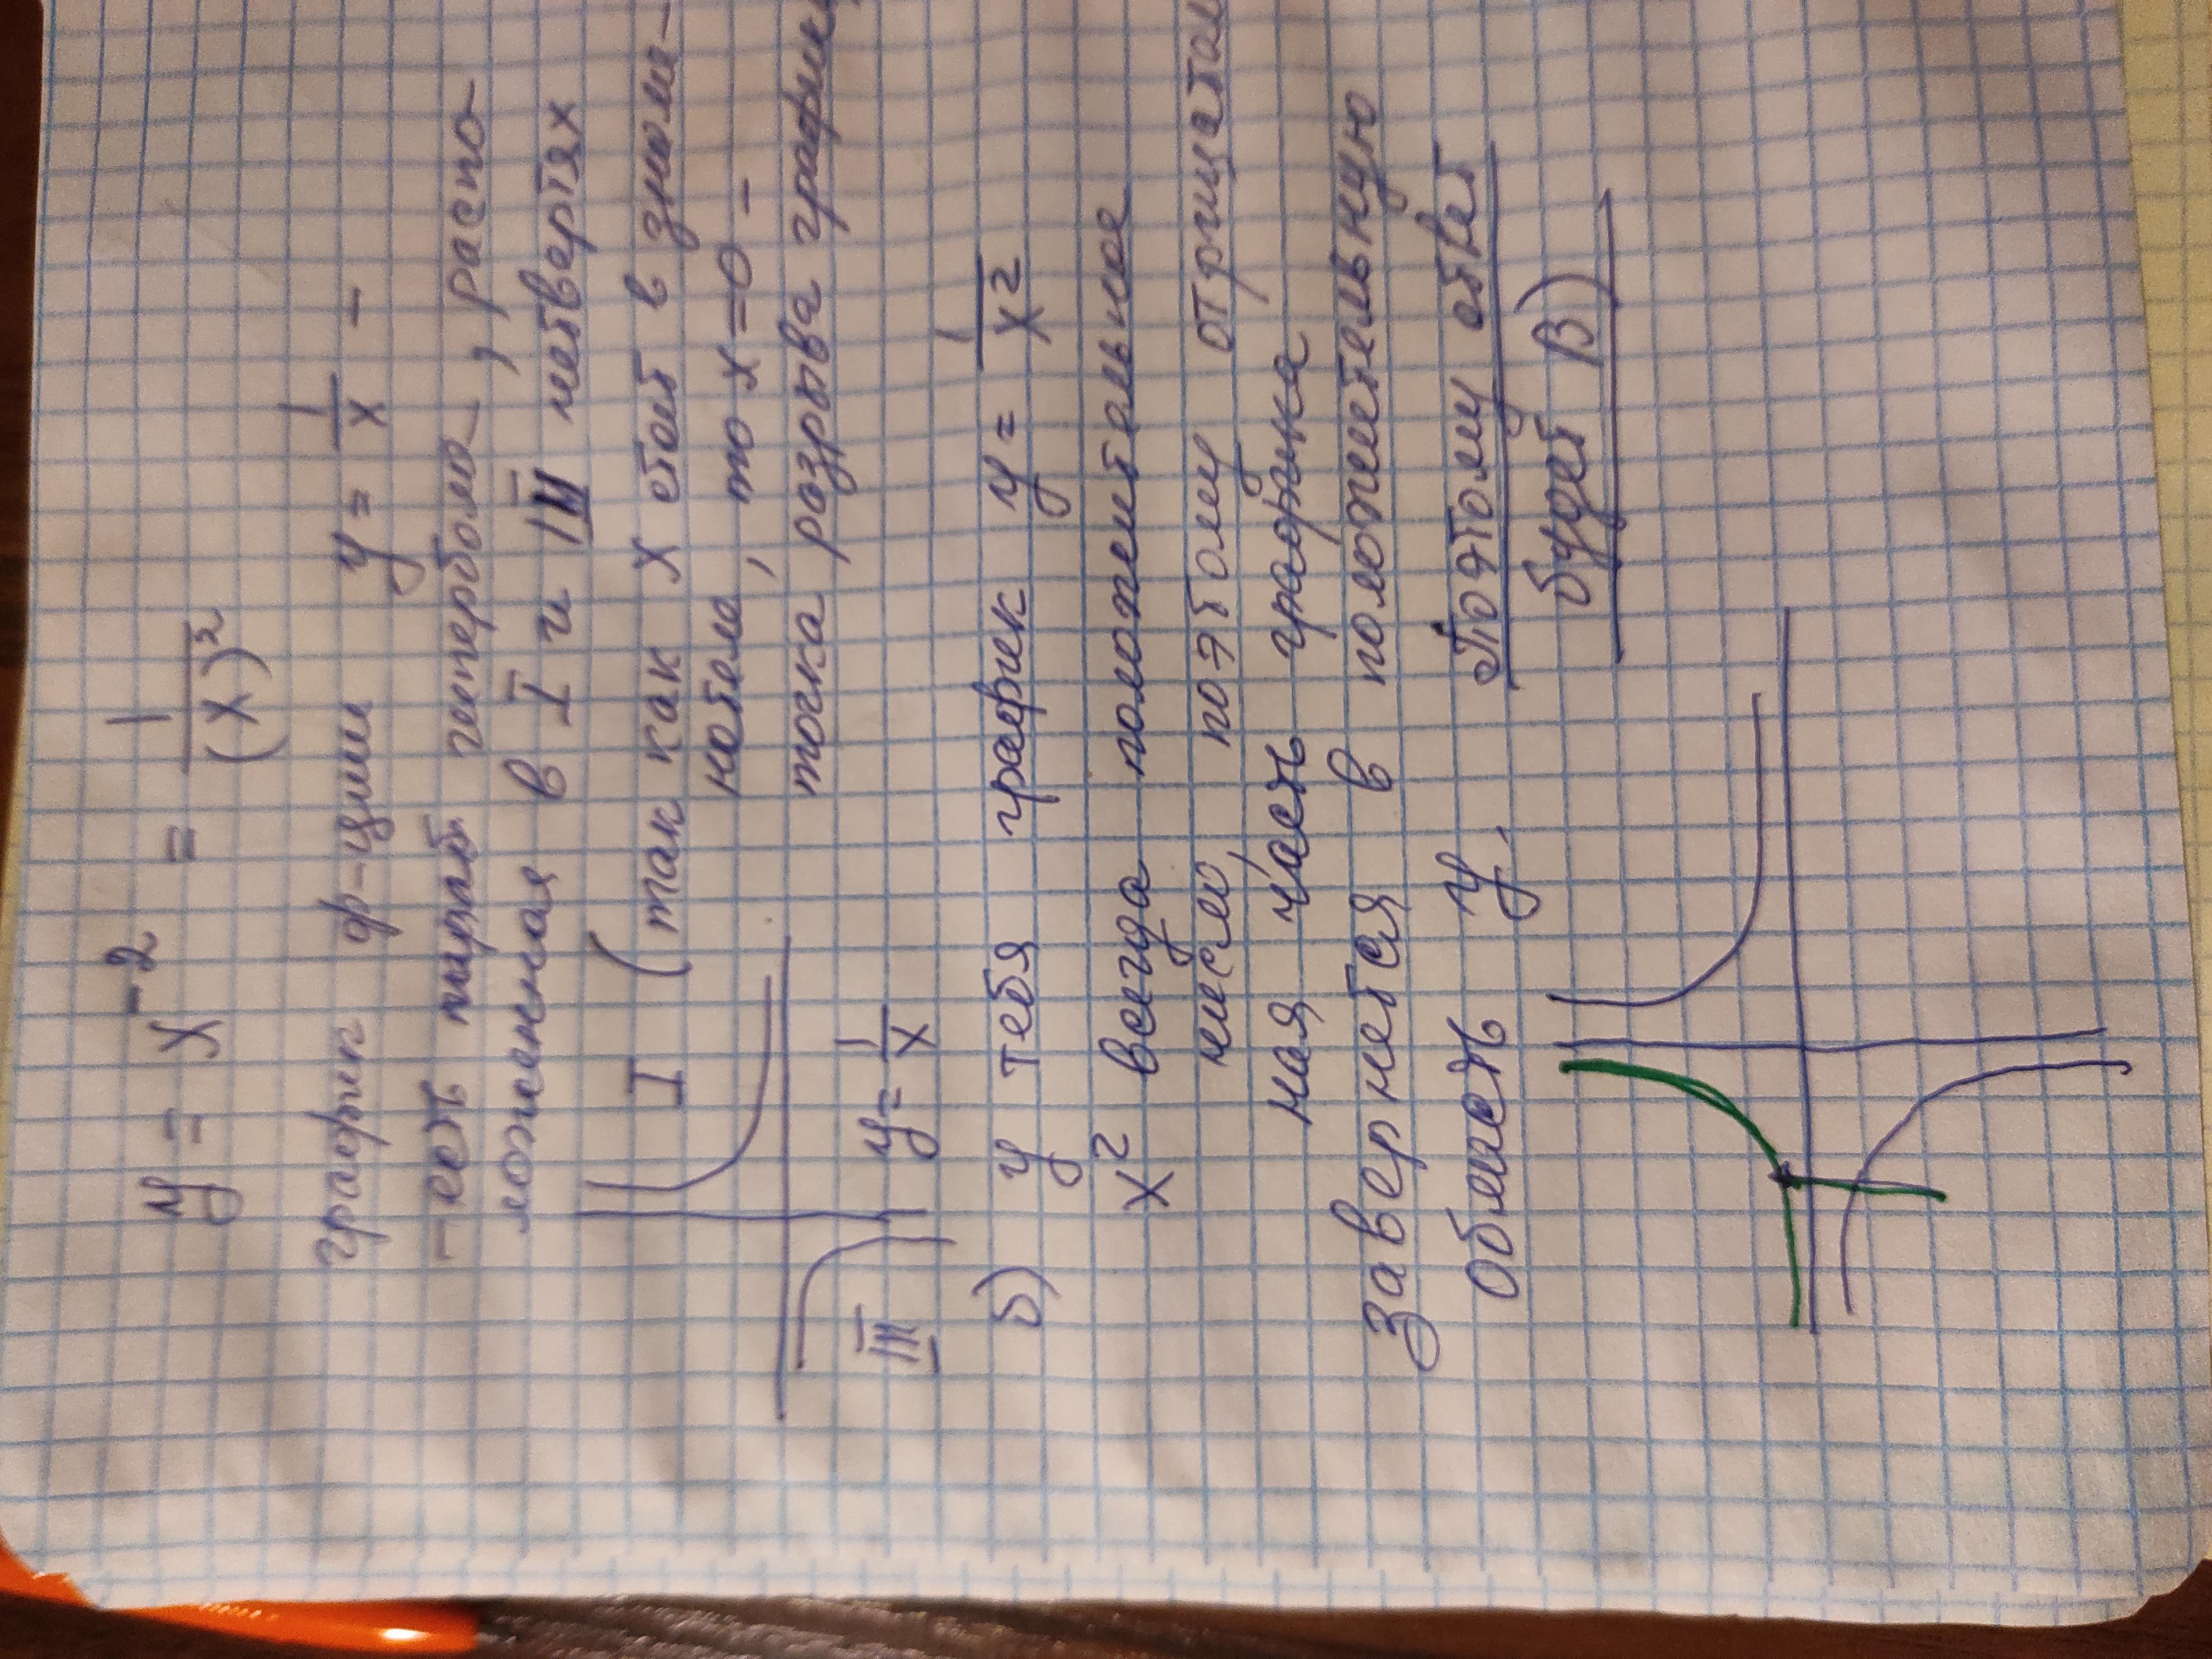 y = x⁻² = 1/(x)²
график ф-ции y = 1/x –
– есть гипербола, распо
ложенная в I и III четвертях
I (так как x стоит в знаме-
нателе, то x = 0 –
точка разрыва графика
III y = 1/x
б) у тебя график y = 1/x²
x² всегда положительное
число, поэтому отрицатель
ная часть графика
завернется в положительную
область y.
Поэтому ответ
будет В)